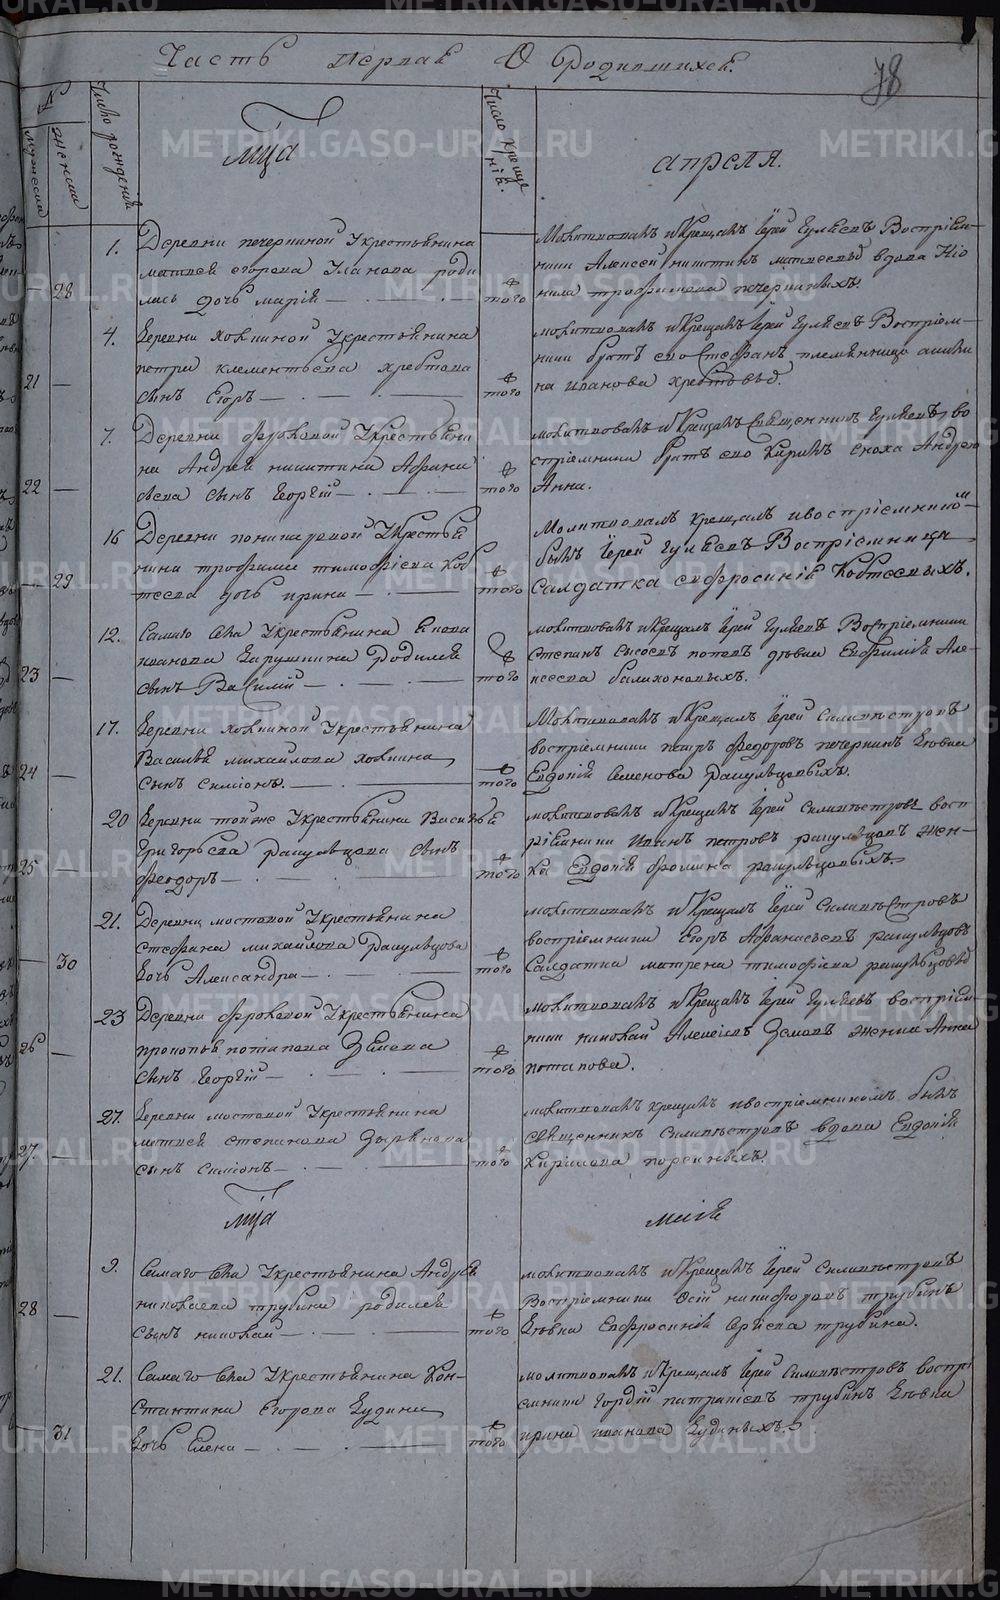 Часть первая О родившихся.
78
№
мужеска
женска
Число рождения
мца
Число крещения.
апреля.
28
1.
Деревни печеркиной Укрестьянина
матвея егорова Уланова роди
лась дочь марiя
того
Молитвовалъ иКрещалъ Iерей Гуляевъ Восприем-
ники Алексей никитинъ вдова Нео
нила трофимова печеркиныхъ.
21
4.
Деревни Ховкиной Укрестьянина
петра клементьева хребтова
сынъ Егоръ
того
молитвовалъ иКрещалъ Iерей Гуляевъ Восприем-
ники братъ его Стефанъ племянница акили
на иванова хребтовы.
22
7.
Деревни фроловой Укрестьяни
на Андрея никитина Афана
сьева сынъ Георгiй
того
молитвовалъ иКрещалъ Священникъ Гуляевъ во
спрiемники братъ его Кирилъ сноха Андрею
Анна.
29
16
Деревни Укрестья
нина трофима тимофеева Коб
тева дочь ирина
того
Молитвовалъ крещалъ ивоспрiемникомъ
былъ Iерей Гуляевъ Воспрiемница
Салдатка евфросинiя Кобтевыхъ.
23
12.
Самаго Села Укрестьянина
иванова Варушкина Родился
сынъ Василiй
того
молитвовалъ иКрещалъ Iерей Гуляевъ Воспрiемники
Степанъ Сысоевъ поповъ девка Евфимiя Але-
ксеева балихоновыхъ.
24
17.
Деревни ховкиной Укрестьянина
Василья михайлова ховкина
сынъ симiонъ.
того
Молитвовалъ иКрещалъ Iерей Сильвестровъ
воспрiемники петръ федоровъ печеркинъ девка
Евдокiя Семенова
25
20
Деревни тойже Укрестьянина Василья
Григорьева сынъ
Феодоръ
того
молитвовалъ иКрещалъ Iерей Сильвестровъ восп
рiемники Иванъ петровъ жен-
ка Евдокiя фомина
30
21.
Деревни мостовой Укрестьянина
Стефана михайлова
дочь Александра
того
молитвовалъ иКрещалъ Iерей Сильвестровъ
воспрiемники Егоръ Афанасьевъ
Салдатка матрена тимофеева
26
23
Деревни фроловой Укрестьянина
прокопья потапова Земова
сынъ Георгiй
того
молитвовалъ иКрещалъ Iерей Гуляевъ воспрiем
ники николай Алексiевъ Земовъ женка Анна
потапова.
27.
27.
Деревни мостовой Укрестьянина
матвея степанова Зырянова
сынъ симiонъ
того
молитвовалъ крещалъ ивоспрiемникомъ былъ
священникъ Сильвестровъ вдова Евдокiя
Кирилова
мца
маiя
28
9.
Самаго Села Укрестьянина Андрея
николаева трубина родился
сынъ николай
того
молитвовалъ иКрещалъ Iерей Сильвестровъ
Воспрiемники Осiй никифоровъ трубинъ
девка Евфросинiя Сергiева трубина.
31
21.
Самаго Села Укрестьянина Кон-
стантина Егорова Кудина
дочь Елена
того
молитвовалъ иКрещалъ Iерей Сильвестровъ воспрi
емники Гордiй патракiевъ трубинъ девка
ирина иванова Кудиныхъ.
METRIKI.GASO-URAL.RU